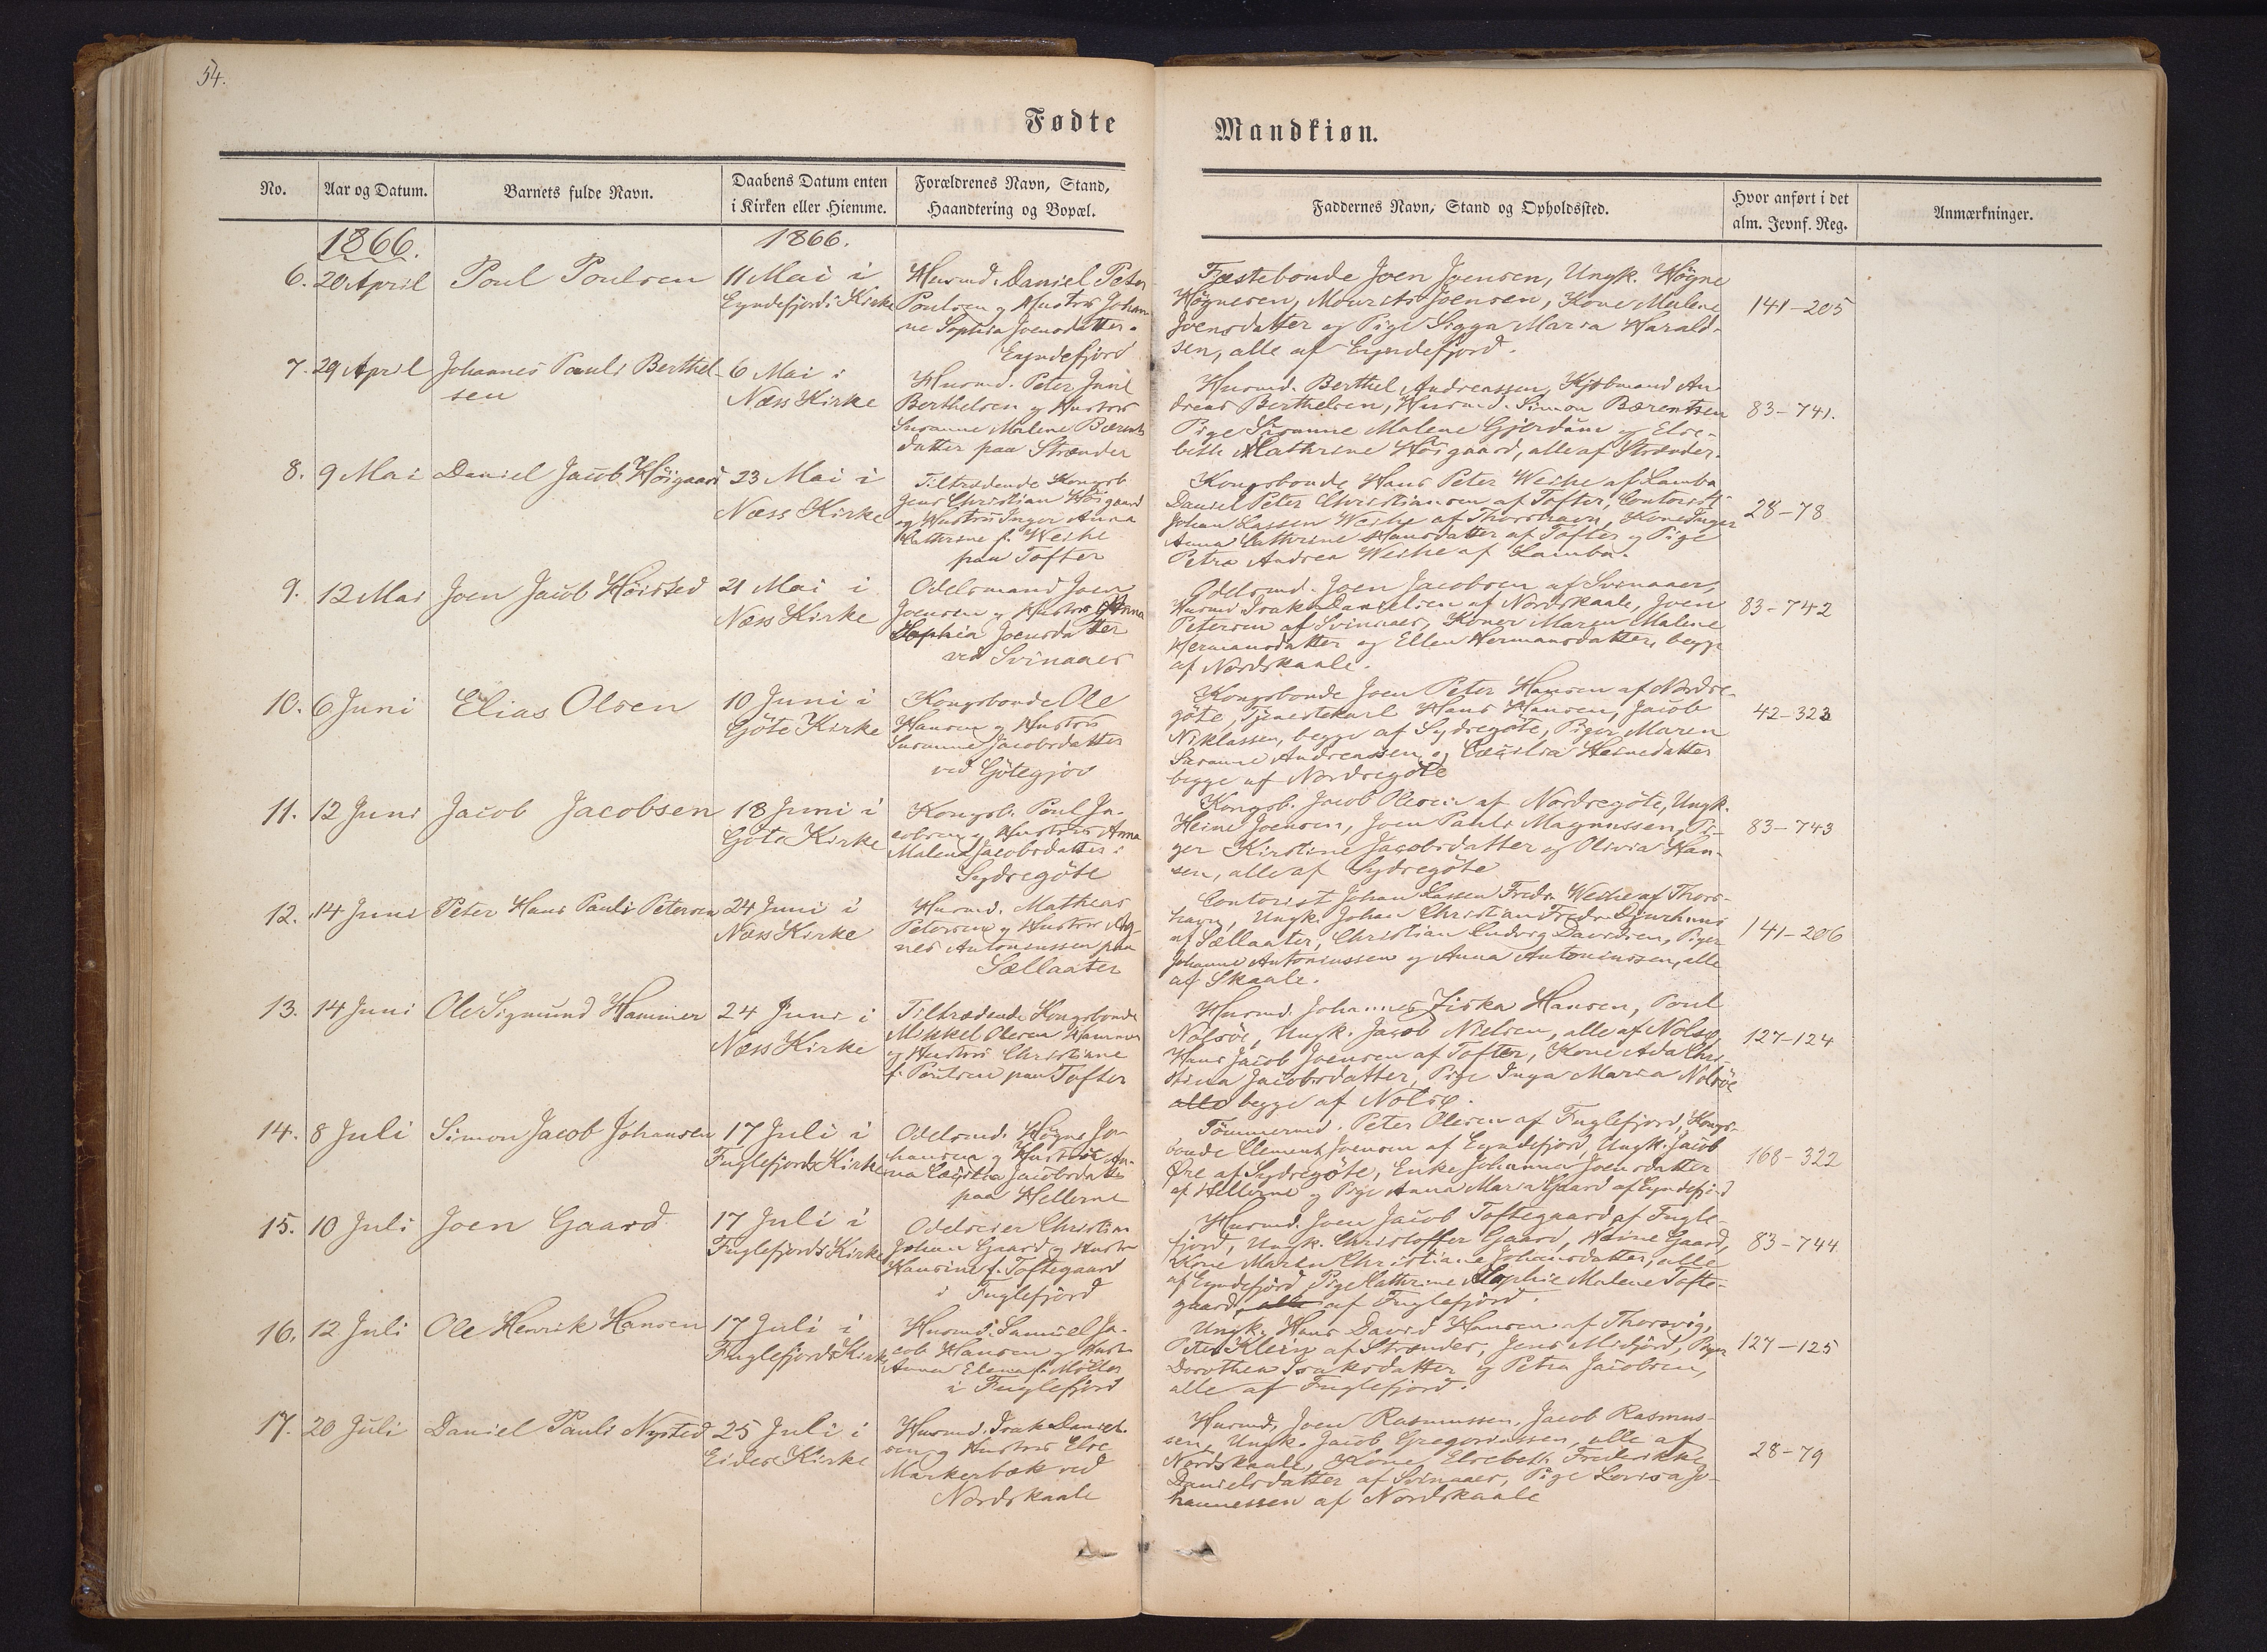 54.
Fødte
Mandkiøn.
No.
Aar og Datum.
Barnets fulde Navn.
Daabens Datum enten
i Kirken eller Hiemme.
Forældrenes Navn, Stand,
Haandtering og Bopæl.
Faddernes Navn, Stand og Opholdssted.
Hvor anført i det
alm. Jevnf. Reg.
Anmærkninger.
1866.
1866.
6.
20 April
Poul Poulsen
11 Mai i
Eyndefjords Kirke
Husmd. Daniel Peter
Poulsen og Hustru Johan-
ne Sophia Joensdatter.
Eyndefjord
Fæstebonde Joen Joensen, Ungk. Högne
Högnesen, Mourits Joensen, Kone Malene
Joensdatter og Pige Sigga Maria Harald-
sen, alle af Eyndefjord.
141-205
7.
29 April
Johannes Pauli Berthel-
sen
6 Mai i
Næss Kirke
Husmd. Peter Juul
Berthelsen og Hustru
Susanne Malene Bærents
datter paa Strænder
Husmd. Berthel Andreassen, Kjøbmand An-
dreas Berthelsen, Husmd. Simon Bærentsen
Pige Susanne Malene Gjerdum og Else-
beth Kathrine Höigaard, alle af Strænder.
83-741.
8.
9 Mai
Daniel Jacob Höigaard
23 Mai i
Næss Kirke
Tiltrædende Kongsb.
Jens Christian Höigaard
og Hustru Inger Anna
Kathrine f. Weihe
paa Tofter
Kongsbonde Hans Peter Weihe af Lamba
Daniel Peter Christiansen af Tofter, Contorist
Johan Lassen Weihe af Thorshavn, Kone Inger
Anna Cathrine Hansdatter af Tofter og Pige
Petra Andrea Weihe af Lamba.
28-78
9.
12 Mai
Joen Jacob Höisted
21 Mai i
Næss Kirke
Odelsmand Joen
Joensen og Hustru Anna
Sophia Joensdatter
ved Svinaaer
Odelsmd. Joen Jacobsen af Svinaaer,
Husmd Isak Danielsen af Nordskaale, Joen
Petersen af Svinaaer, Koner Maren Malene
Hermansdatter og Ellen Hermansdatter, begge
af Nordskaale.
83-742
10.
6 Juni
Elias Olsen
10 Juni i
Göte Kirke
Kongsbonde Ole
Hansen og Hustru
Susanne Jacobsdatter
ved Götegjov
Kongsbonde Joen Peter Hansen af Nordre-
göte, Tjenestekarl Hans Hansen, Jacob
Niklassen, begge af Sydregöte, Piger Maren
Susanne Andreassen og Cæcilia Heinedatter
begge af Nordregöte
42-323
11.
12 Juni
Jacob Jacobsen
18 Juni i
Göte Kirke
Kongsb. Poul Ja-
cobsen og Hustru Anna
Malena Jacobsdatter i
Sydregöte
Kongsb. Jacob Olesen af Nordregöte, Ungk.
Heine Joensen, Joen Pauli Magnussen, Pi-
ger Kirstine Jacobsdatter og Olivia Han-
sen, alle af Sydregöte
83-743
12.
14 Juni
Peter Hans Pauli Petersen
24 Juni i
Næss Kirke
Husmd. Mathias
Petersen og Hustru Ag-
nes Antoniussen paa
Sællaater
Contorist Johan Lassen Fredr. Weihe af Thors-
havn, Ungk. Johan Christian Fredr. Djurhuus
af Sællaater, Christian Ludvig Davidsen, Piger
Johanne Antoniussen og Anna Antoniussen, alle
af Skaale.
141-206
13.
14 Juni
Ole Sigmund Hammer
24 Juni i
Næss Kirke
Tiltrædende Kongsbonde
Mikkel Olesen Hammer
og Hustru Christiane
f. Poulsen paa Tofter
Husmd. Johannes Ziska Hansen, Poul
Nolsöe, Ungk. Jacob Nielsen, alle af Nolsø,
Hans Jacob Joensen af Tofter, Kone Ada Chri-
stina Jacobsdatter, Pige Inga Maria Nolsöe
alle begge af Nolsø.
127-124
14.
8 Juli
Simon Jacob Johansen
17 Juli i
Fuglefjords Kirke
Odelsmd. Högne Jo-
hansen og Hustru An-
na Cæcilia Jacobsdatter
paa Hellerne
Tömmermd. Peter Olesen af Fuglefjord, Kongs-
bonde Clement Joensen af Eyndefjord, Ungk. Jacob
Øre af Sydregöte, Enke Johanna Joensdatter
af Hellerne og Pige Anna Maria Gaard af Eyndefjord
168-322
15.
10 Juli
Joen Gaard
17 Juli i
Fuglefjords Kirke
Odelseier Christian
Johan Gaard og Hustru
Hansine f. Toftegaard
i Fuglefjord
Husmd. Joen Jacob Toftegaard af Fugle-
fjord, Ungk. Christoffer Gaard, Heine Gaard,
Kone Maren Christiane Johansdatter, alle
af Eyndefjord, Pige Kathrine Sophie Malene Tofte-
gaard, alle af Fuglefjord.
83-744
16.
12 Juli
Ole Henrik Hansen
17 Juli i
Fuglefjords Kirke
Husmd. Samuel Ja-
cob Hansen og Hustr.
Anna Elena f. Möller
i Fuglefjord
Ungk. Hans David Hansen af Thorsvig,
Peter Klein af Strænder, Jens Midfjord, Piger
Dorothea Isaksdatter og Petra Jacobsen,
alle af Fuglefjord.
127-125
17.
20 Juli
Daniel Pauli Nysted
25 Juli i
Eidere Kirke
Husmd. Isak Daniel-
sen og Hustru Else
Markerbæk ved
Nordskaale
Husmd. Joen Rasmussen, Jacob Rasmus-
sen, Ungk. Jacob Gregoriassen, alle af
Nordskaale, Kone Elsebeth Frederikke
Danielsdatter af Svinaaer, Pige Lovisa Jo-
hannessen af Nordskaale
28-79